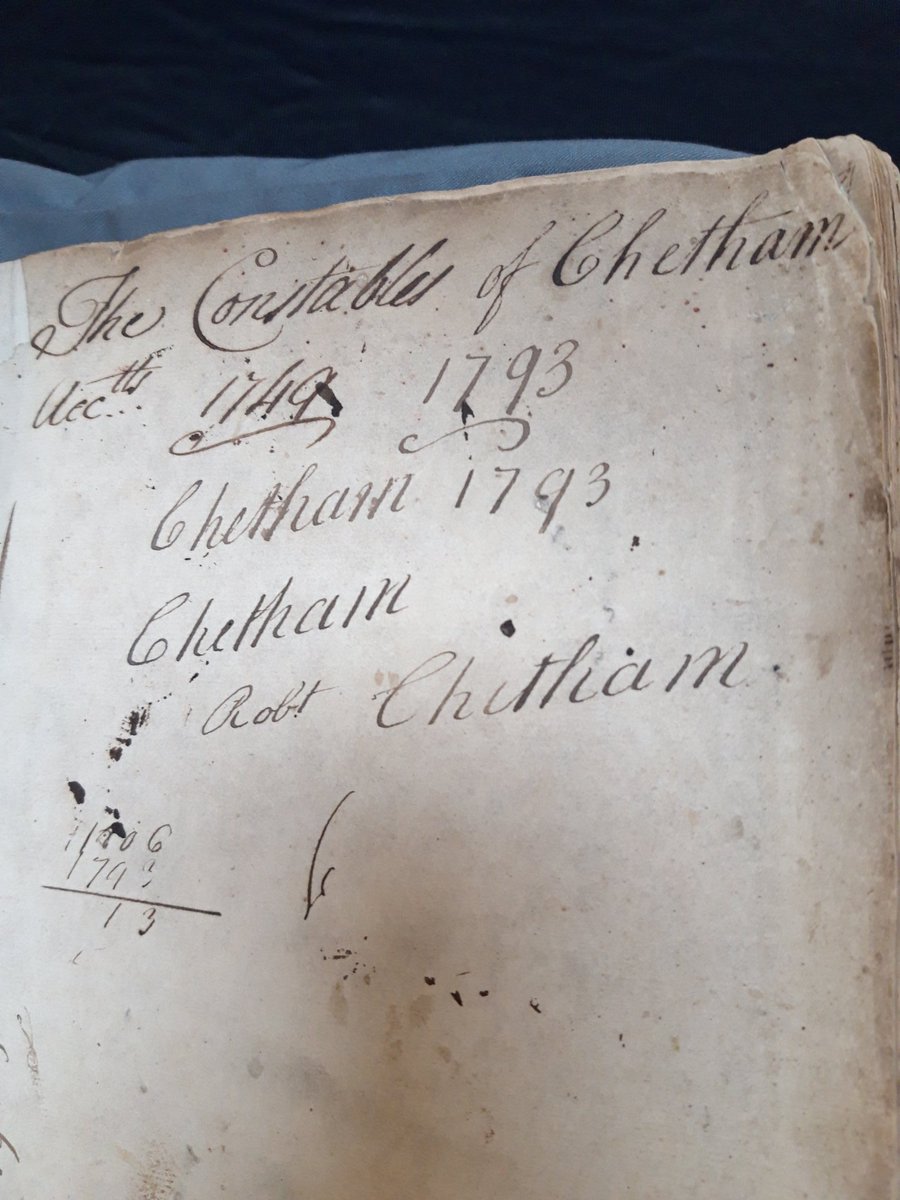 The Constables of Chetham
Accts 1749 1793
Chetham 1793
Chetham
Robt Chetham
1806
1793
13